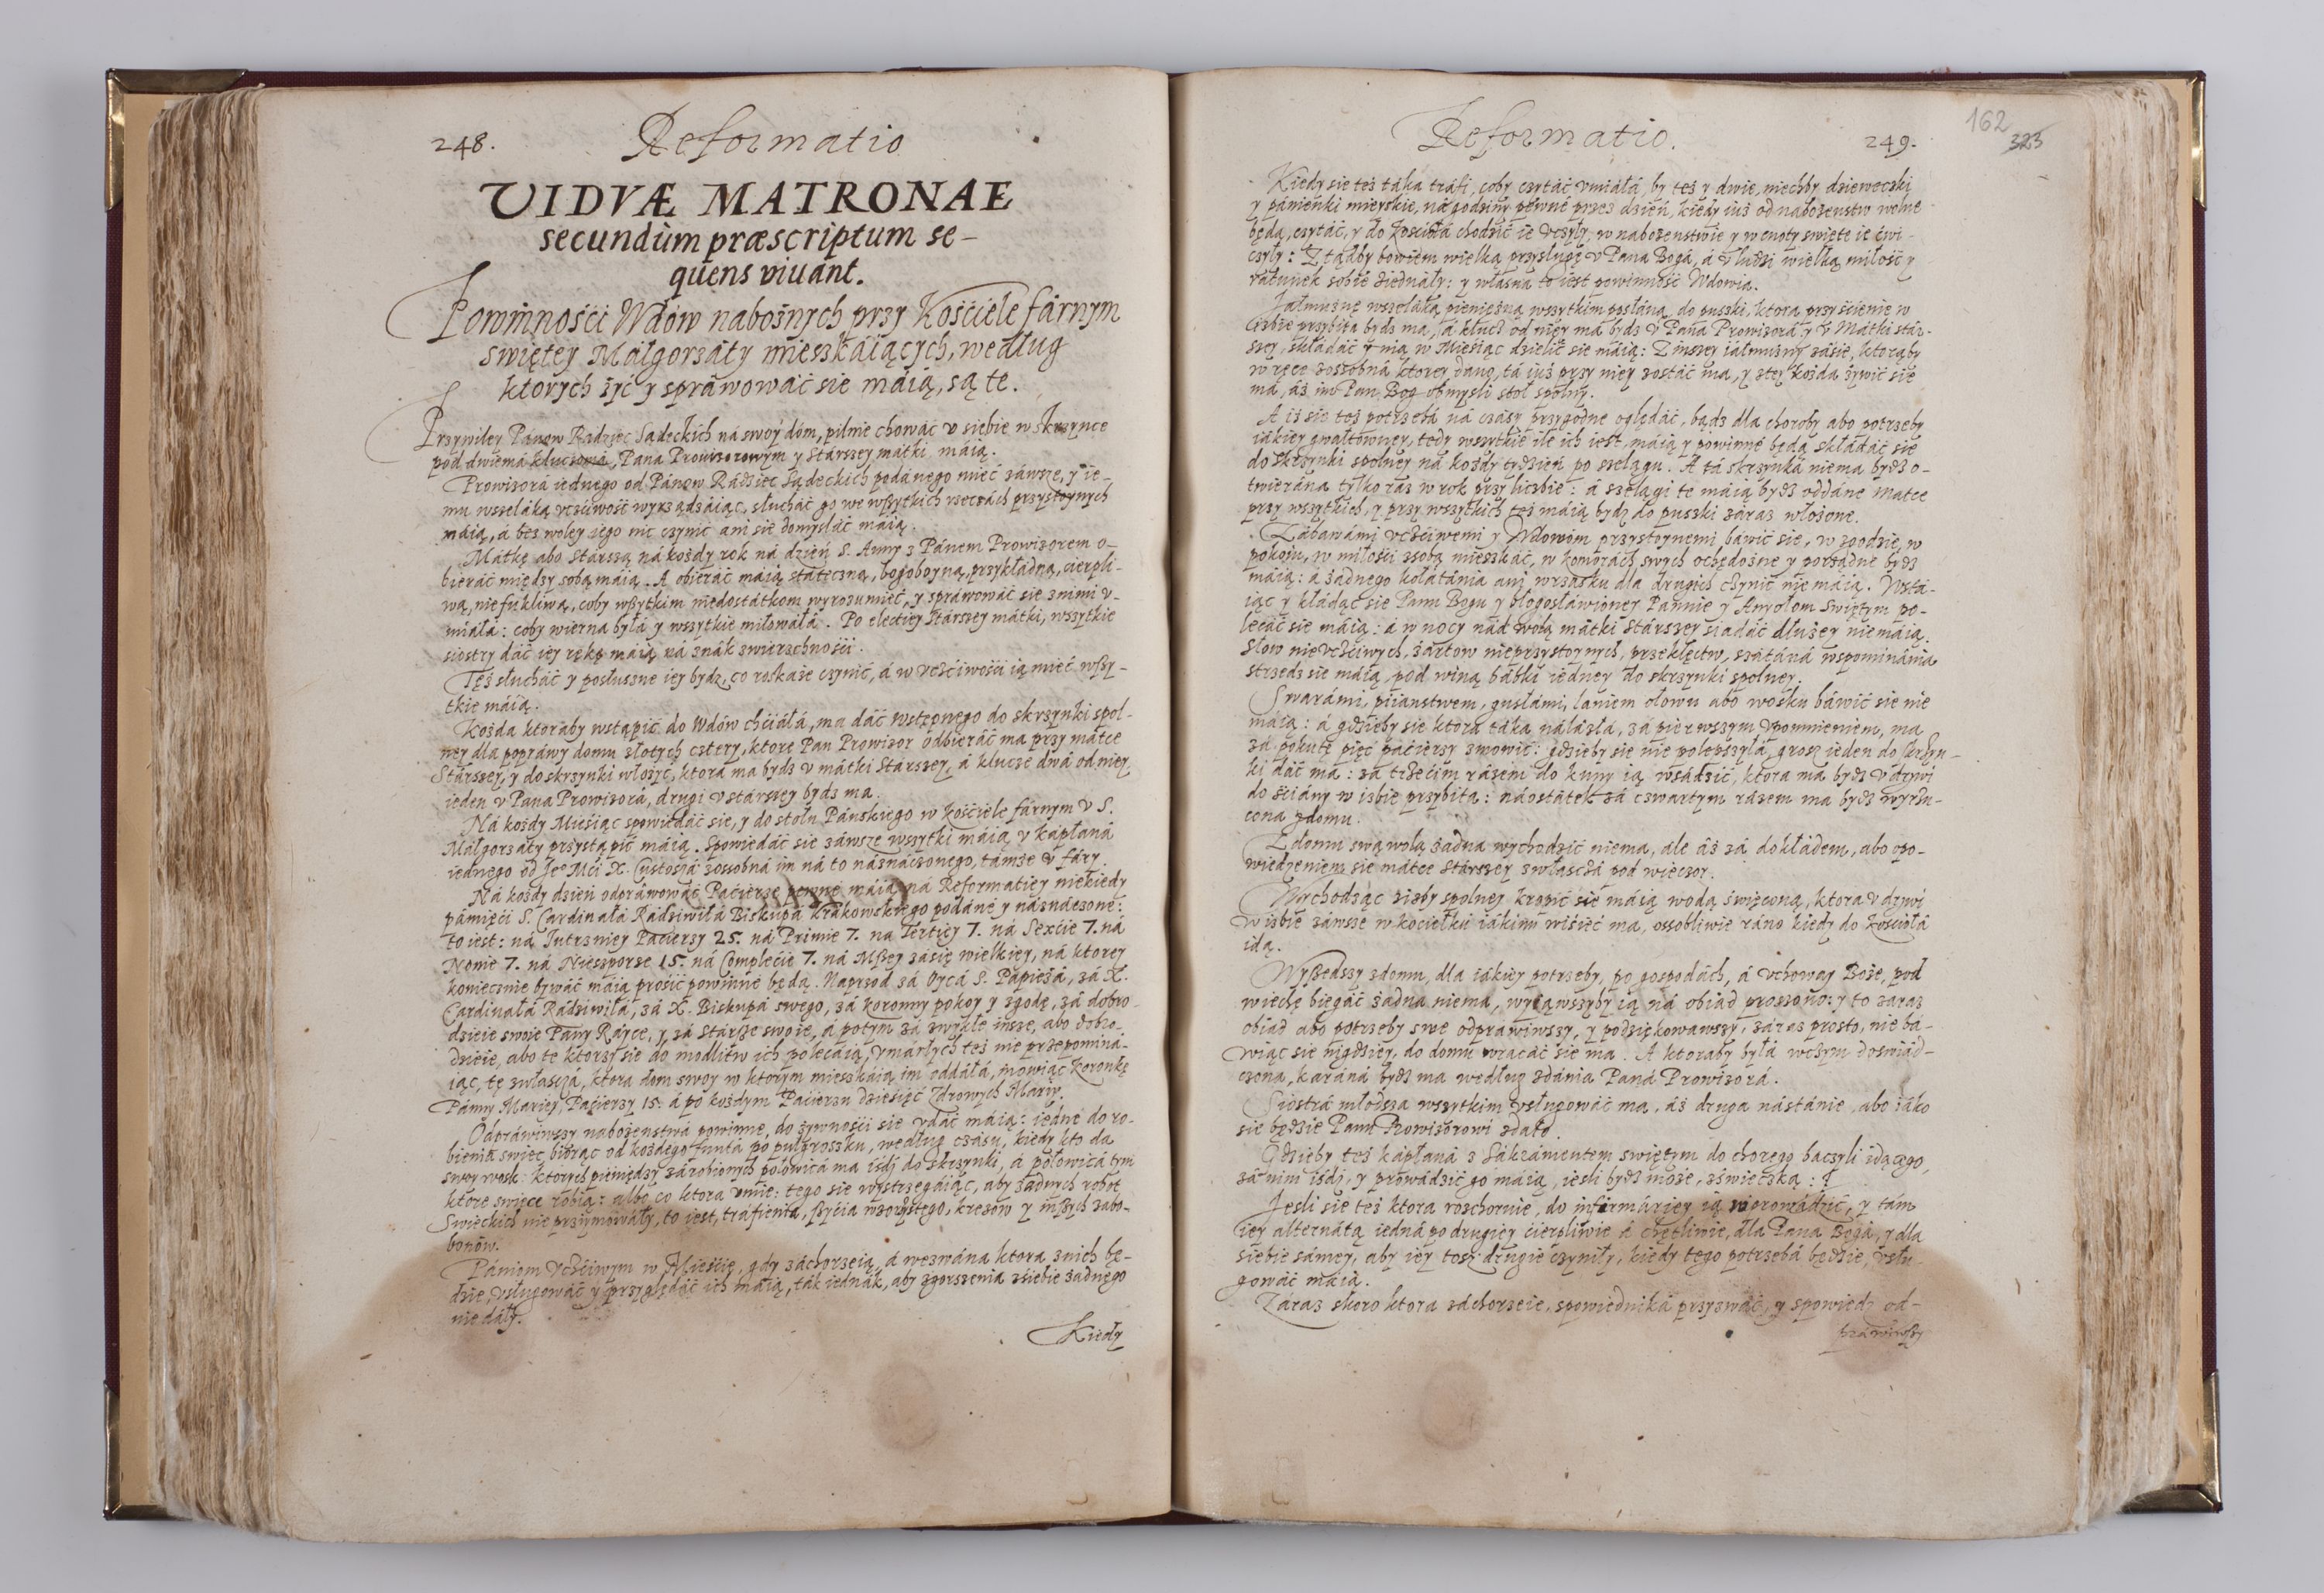 248.
Reformatio
VIDVÆ MATRONAE
secundùm præscriptum se-
quens viuant.
Powinności Wdow nabożnych przy Kościele farnym
swiętey Małgorzáty mieszkáiących, według
ktorych żyć y spráwowáć sie máią, są te.
Przywiley Pánow Radziec Sądeckich ná swoy dóm, pilnie chowáć v siebie w skrzynce
pod dwiemá kluczoma, Pana Prowizorowym y Stárszey mátki máią.
Prowizorá iednego od Pánow Rádziec Sądeckich podánego mieć záwsze, y ie-
mu wszeláką vczciwość wyrządzáiąc, słucháć go we wszytkich rzeczách przystoynych
máią, á bez woley iego nic czynić ani sie domysláć máią.
Mátkę abo stárszą ná kożdy rok ná dzień S. Anny z Pánem Prowizorem o-
bieráć między sobą máią. A obieráć máią státeczną, bogoboyną, przykłádną, cierpli-
wą, niefukliwą, coby wszytkim niedostátkom wyrozumieć, y spráwowáć sie z nimi v-
miáłá: coby wierna byłá y wszytkie miłowáłá. Po electiey Stárszey mátki, wszytkie
siostry dáć iey rękę máią ná znák zwierzchności.
Teyż słucháć y posłuszne iey bydź, co roskaże czynić, á w vczciwości ią mieć wszy-
tkie máią.
Kożda ktoraby wstąpić do Wdów chciáłá, ma dáć wstępnego do skrzynki spol-
ney dla popráwy domu złotych cztery, ktore Pan Prowizor odbieráć ma przy mátce
Stárszey, y do skrzynki włożyć, ktora ma bydź v mátki Stárszey, á klucze dwá od niey
ieden v Pana Prowizorá, drugi v stárszey bydź ma.
Ná kożdy Miesiąc spowiedáć sie, y do stołu Pánskiego w Kościele fárnym v S.
Małgorzáty przystąpić máią. Spowiedáć sie záwsze wszytki máią v kápłaná
iednego od Je° Mći X. Custoszá zossobná im ná to náznáczonego, támże v fáry.
Ná kożdy dzień odpráwowáć Pacierze pewne máią ná Reformatiey niekiedy
pámięci S. Cardinałá Rádziwiłá Biskupá Krákowskiego podáne y náznáczone:
to iest: ná Jutrzniey Pacierzy 25. ná Primie 7. na Tertiey 7. ná Sexcie 7. ná
Nonie 7. ná Nieszporze 15. ná Complecie 7. ná Mszey zásię wielkiey, ná ktorey
koniecznie bywáć máią prosić powinne będą. Naprzod zá Oycá S. Papieżá, zá X.
Cardinałá Rádziwiłá, zá X. Biskupá swego, zá koronny pokoy y zgodę, zá dobro-
dzieie swoie Pány Ráyce, y zá stársze swoie, á potym zá zwykłe insze, abo dobro-
dzieie, abo te ktorzy sie do modlitw ich polecáią, vmárłych też nie przepomina-
iąc, tę zwłaszczá, ktora dom swoy w ktorym mieszkáią im oddáłá, mowiąc Koronkę
Pánny Mariey, Pacierzy 15. á po kożdym Pacierzu dziesięć Zdrowych Mariy.
Odpráwiwszy nabożeństwá powinne, do żywności sie vdáć máią: iedne do ro-
bienia swiec, biorąc od kożdego funtá po pułgroszku, według czásu, kiedy kto da
swoy wosk: ktorych pieniędzy zárobionych połowicá ma iśdź do skrzynki, á połowicá tym
ktore swięce robią: albo co ktora vmie: tego sie wystrzegáiąc, aby żadnych robot
Swieckich nie przyimowáły, to iest, tráfienia, szycia wzorzystego, krezow y inszych zabo-
bonów.
Pániom Vczciwym w Mieście, gdy záchorzeią, á wezwána ktora z nich bę-
dzie, vsługowáć y przyglądáć ich máią, ták iednák, aby zgorszenia z siebie żadnego
nie dáły.
Kiedy
Reformatio.
249.
162
323
Kiedy sie też táka tráfi, coby czytáć vmiáłá, by też y dwie, niechby dzieweczki
y pánienki mieyskie, ná godziny pewne przez dzień, kiedy iuż od nabożenstw wolne
będą, czytáć, y do Kościołá chodzić ie vczyły, w nabożenstwie y w cnoty swięte ie ćwi-
czyły: Ztądby bowiem wielką przysługę v Pana Bogá, á v ludzi wielką miłość y
rátunek sobie ziednáły: y własna to iest powinność Wdowia.
Jałmużnę wszeláką pieniężną wszytkim posłáną, do puszki, ktora przy ścienie w
izbie przybita bydź ma, á klucz od niey ma bydź v Pána Prowizorá y v Mátki stár-
szey, skłádáć y nią w Miesiąc dzielić sie máią: Z inszey iáłmużny zásie, ktoraby
w ręce zossobná ktorey dano, tá iuż przy niey zostáć ma, y z tey kożda żywić sie
má, áż im Pan Bog obmysli stoł spolny.
A iż sie też potrzebá ná czásy przygodne oględáć, bądź dla choroby abo potrzeby
iákiey gwałtowney, tedy wszytkie ile ich iest, máią y powinne będą składáć sie
do skrzynki spolney ná kożdy tydzień po szelągu. A tá skrzynká niema bydź o-
twieráná tylko raz w rok przy liczbie: á szelągi te máią bydź oddáne Matce
przy wszytkich, y przy wszytkich też máią bydź do puszki záraz włożone.
Zábawámi vczciwemi y Wdowom przystoynemi báwić sie, w zgodzie, w
pokoiu, w miłości z sobą mieszkáć, w komorách swych ochędożne y porządne bydź
máią: á żadnego kołátánia ani wrzásku dla drugich czynić nie máią. Wstá-
iąc y kłádąc sie Panu Bogu y błogosłáwioney Pánnie y Anyołom swiętym po-
lecáć sie máią: á w nocy nád wolą mátki Stárszey siadáć dłużey nie máią.
Słow nievczciwych, żártow nieprzystoynych, przeklęctw, szátáná wspominánia
strzedz sie máią, pod winą bábki iedney do skrzynki spolney.
Swarámi, piianstwem, gusłámi, laniem ołowu abo wosku báwić sie nie
máią: á gdzieby sie ktora táka nálázłá, zá pierwszym vpomnieniem, ma
zá pokutę pięć pacierzy zmowić: gdzieby sie nie polepszyłá, grosz ieden do skrzyn-
ki dáć ma: zá trzecim rázem do kuny ią wsádzić, ktora ma bydź v drzwi
do ściány w izbie przybita: náostátek zá czwartym rázem ma bydź wyrzu-
cona z domu.
Z domu swą wolą żadna wychodzić niema, ale áż zá dokłádem, abo opo-
wiedzeniem sie mátce Stárszey zwłaszczá pod wieczor.
Wychodząc z izby spolney kropić sie máią wodą święconą, ktora v drzwi
w izbie záwsze w kociełku iákim wisieć ma, ossobliwie ráno kiedy do Kościołá
idą.
Wyszedszy z domu, dla iákiey potrzeby, po gospodách, á vchoway Boże, pod
wiechę biegáć żadna niema, wyiąwszyby ią ná obiad proszono: y to záraz
obiad abo potrzeby swe odpráwiwszy, y podziękowawszy, záraz prosto, nie bá-
wiąc sie nigdziey, do domu wracáć sie ma. A ktoraby byłá w czym doswiád-
czona, karáná bydź ma według zdánia Paná Prowizorá.
Siostrá młodsza wszytkim vsługowáć ma, áż druga nástánie, abo iáko
sie będzie Panu Prowizorowi zdáło.
Gdzieby też kápłaná z Sákrámentem swiętym do chorego baczyli idącego,
zá nim iśdź, y prowádzić go máią, iesli bydź może, z świeczką:
Jesli sie też ktora rozchornie, do infirmáriey ią wprowádzić, y tám
iey alternátą iedná po drugiey cierpliwie á chętliwie, dla Pana Bogá, y dla
siebie sámey, aby iey toż drugie czyniły, kiedy tego potrzebá będzie, vsłu
gowáć máią.
Záraz skoro ktora záchorzeie, spowiedniká przyzwáć, y spowiedź od-
práwiwszy